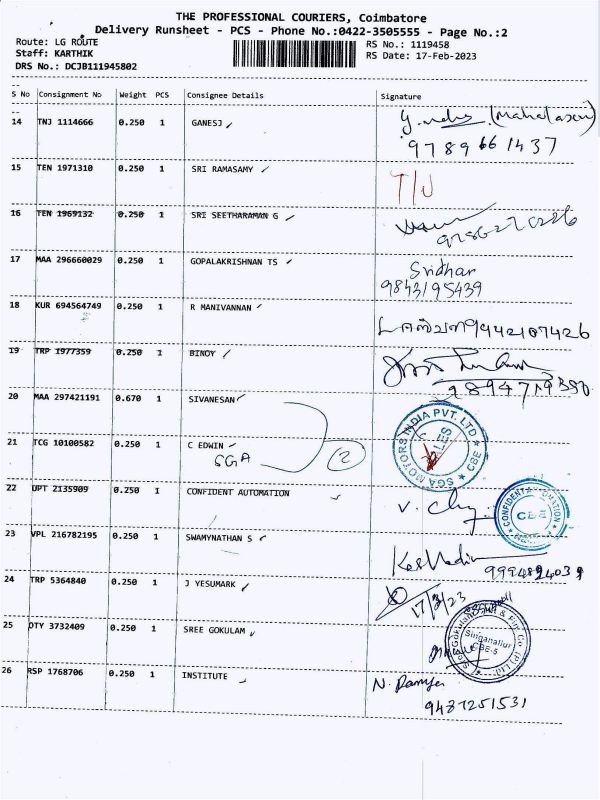 THE PROFESSIONAL COURIERS, Coimbatore
Delivery Runsheet - PCS - Phone No.:0422-3505555 - Page No.:2
Route: LG ROUTE
RS No.: 1119458
Staff: KARTHIK
RS Date: 17-Feb-2023
DRS No.: DCJB111945802
S No Consignment No Weight PCS Consignee Details Signature
14 TNJ 1114666 0.250 1 GANESJ (Mahalaxmi)
9789661437
15 TEN 1971310 0.250 1 SRI RAMASAMY T/U
16 TEN 1969132 0.250 1 SRI SEETHARAMAN G
17 MAA 296660029 0.250 1 GOPALAKRISHNAN TS Sridhar
9843195439
18 KUR 694564749 0.250 1 R MANIVANNAN 9442107426
19 TRP 1977359 0.250 1 BINOY
20 MAA 297421191 0.670 1 SIVANESAN
SGA MOTORS INDIA PVT. LTD CBE
SALES
21 TCG 10100582 0.250 1 C EDWIN
SGA 2
22 UPT 2135909 0.250 1 CONFIDENT AUTOMATION
CONFIDENT AUTOMATION
CBE
23 VPL 216782195 0.250 1 SWAMYNATHAN S
9994894039
24 TRP 5364840 0.250 1 J YESUMARK 17/2/23
25 OTY 3732409 0.250 1 SREE GOKULAM
Singanallur
CBE-5
26 RSP 1768706 0.250 1 INSTITUTE
9487251531